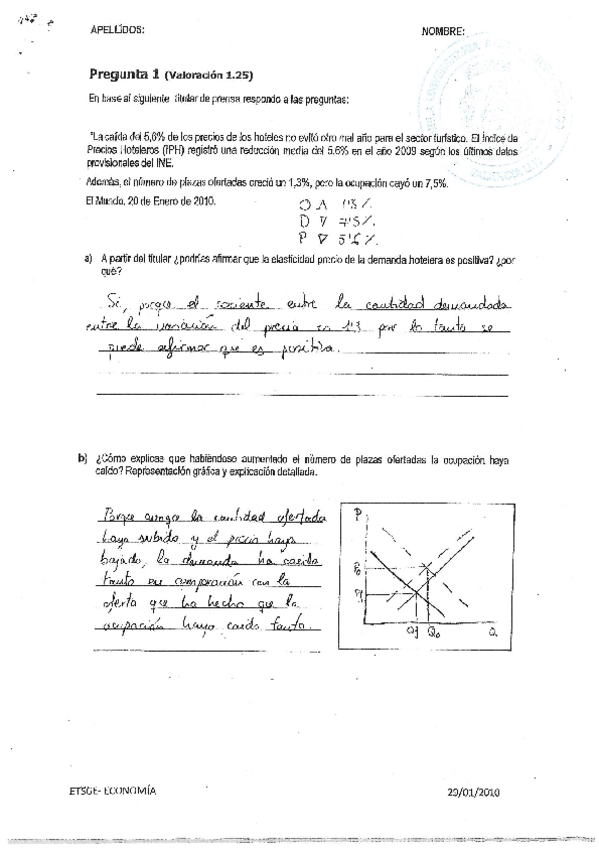 APELLIDOS: NOMBRE:
Pregunta 1 (Valoración 1.25)
En base al siguiente titular de prensa respondo a las preguntas:
"La caída del 5,6% de los precios de los hoteles no evitó otro mal año para el sector turístico. El Índice de
Precios Hoteleros (IPH) registró una reducción media del 5.6% en el año 2009 según los últimos datos
provisionales del INE.
Además, el número de plazas ofertadas creció un 1,3%, pero la ocupación cayó un 7,5%.
El Mundo, 20 de Enero de 2010.
O Δ 1'3 %
D ∇ 7'5 %
P ∇ 5'6 %
a) A partir del titular ¿podrías afirmar que la elasticidad precio de la demanda hotelera es positiva? ¿por
qué?
Si, porque el cociente entre la cantidad demandada
entre la variación del precio es 1'3 por lo tanto se
puede afirmar que es positiva.
b) ¿Cómo explicas que habiéndose aumentado el número de plazas ofertadas la ocupación haya
caído? Representación gráfica y explicación detallada.
Porque aunque la cantidad ofertada
haya subido y el precio haya
bajado, la demanda ha caido
tanto en comparación con la
oferta que ha hecho que la
ocupación haya caido tanto.
P
P0
P1
Q1 Q0 Q
ETSGE- ECONOMÍA 20/01/2010